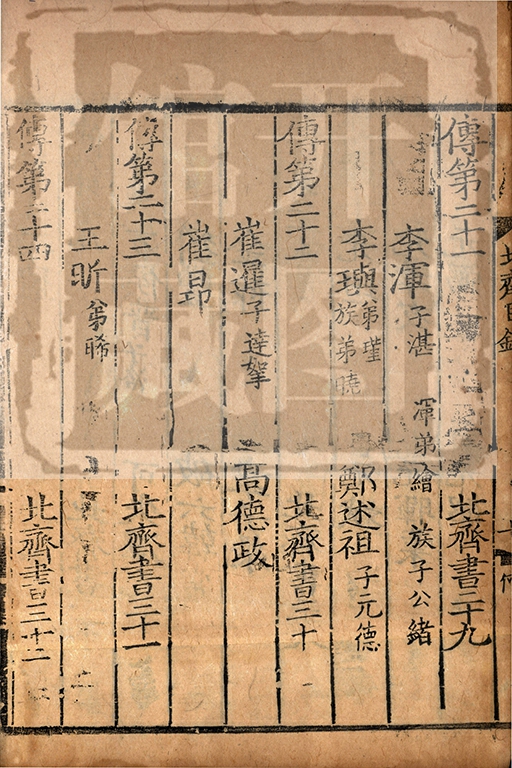 傳第二十一 北齊書二十九
李渾 子湛 渾弟繪 族子公緒
李璵 弟瑾 族弟曉 鄭述祖 子元德
傳第二十二 北齊書三十
崔暹 子達拏 高德政
崔昂
傳第二十三 北齊書三十一
王昕 弟晞
傳第二十四 北齊書三十二